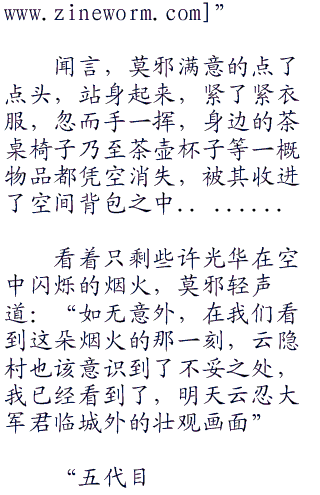 www.zineworm.com]”
闻言，莫邪满意的点了
点头，站身起来，紧了紧衣
服，忽而手一挥，身边的茶
桌椅子乃至茶壶杯子等一概
物品都凭空消失，被其收进
了空间背包之中.. ......
看着只剩些许光华在空
中闪烁的烟火，莫邪轻声
道：“如无意外，在我们看
到这朵烟火的那一刻，云隐
村也该意识到了不妥之处，
我已经看到了，明天云忍大
军君临城外的壮观画面”
“五代目